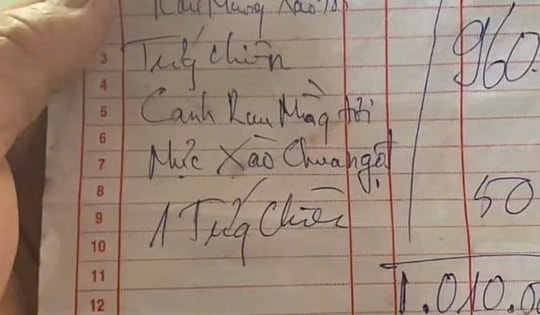 Rau Muống Xào Tỏi 960.
3 Trứng chiên
4
5 Canh Rau Mồng tơi
6
7 Mực Xào Chua ngọt
8 50
9 1 Trứng Chiên
10
11 1.010.00
12